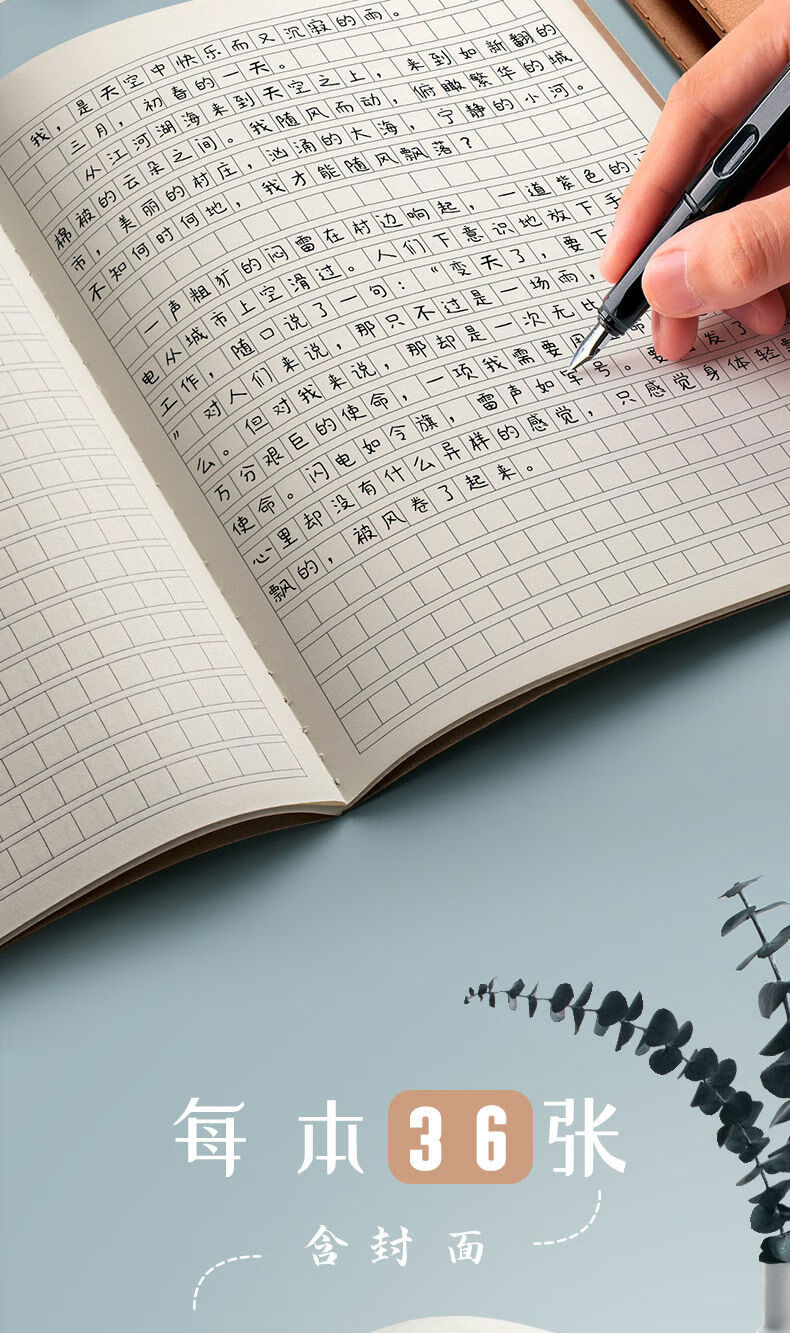 我，是天空中快乐而又沉寂的雨。
三月，初春的一天。
从江河湖海来到天空之上，来到如新翻的
棉被的云朵之间。我随风而动，俯瞰繁华的城
市，美丽的村庄，汹涌的大海，宁静的小河。
不知何时何地，我才能随风飘落？
一声粗犷的闷雷在村边响起，一道紫色的
电从城市上空滑过。人们下意识地放下手
工作，随口说了一句：“变天了，要下
”对人们来说，那只不过是一场雨，
么。但对我来说，那却是一次无比
万分艰巨的使命，一项我需要用
使命。闪电如令旗，雷声如军号。要出发了
心里却没有什么异样的感觉，只感觉身体轻飘
飘的，被风卷了起来。
每本36张
含封面